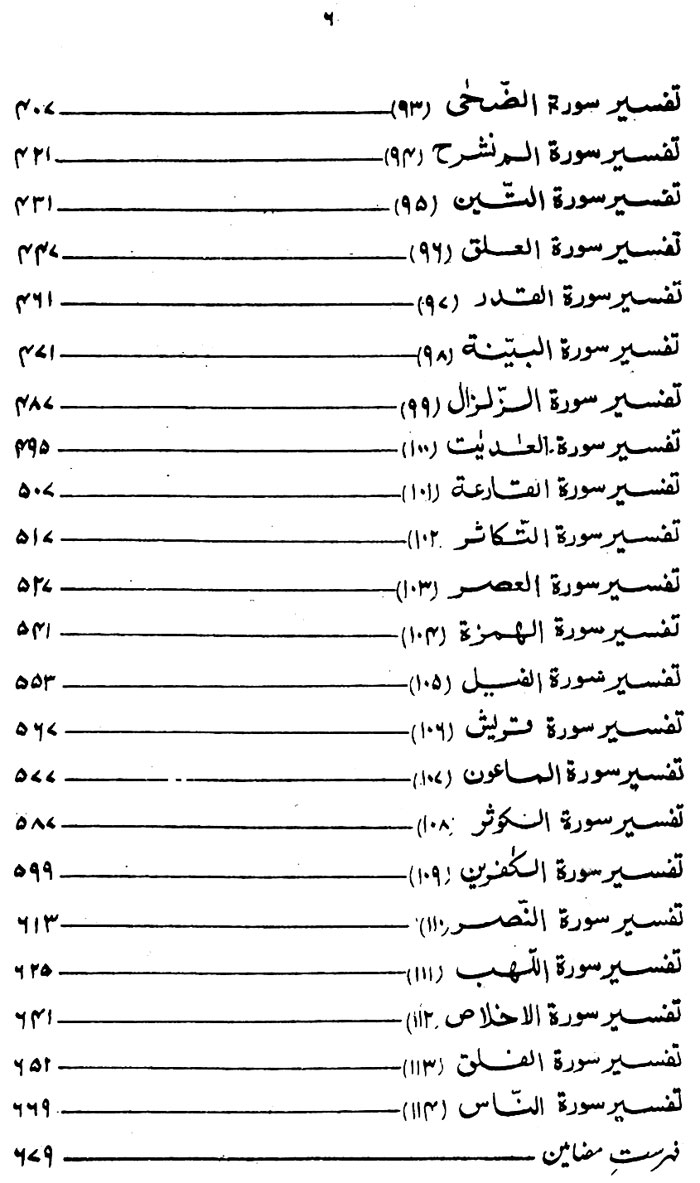 ۶
تفسیر سورۃ الضّحٰی (۹۳) ۴۰۷
تفسیر سورۃ الم نشرح (۹۴) ۴۲۱
تفسیر سورۃ التّین (۹۵) ۴۳۱
تفسیر سورۃ العلق (۹۶) ۴۴۷
تفسیر سورۃ القدر (۹۷) ۴۶۱
تفسیر سورۃ البیّنۃ (۹۸) ۴۷۱
تفسیر سورۃ الزّلزال (۹۹) ۴۸۷
تفسیر سورۃ العٰدیٰت (۱۰۰) ۴۹۵
تفسیر سورۃ القارعۃ (۱۰۱) ۵۰۷
تفسیر سورۃ التّکاثر (۱۰۲) ۵۱۷
تفسیر سورۃ العصر (۱۰۳) ۵۲۷
تفسیر سورۃ الھمزۃ (۱۰۴) ۵۴۱
تفسیر سورۃ الفیل (۱۰۵) ۵۵۳
تفسیر سورۃ قریش (۱۰۶) ۵۶۷
تفسیر سورۃ الماعون (۱۰۷) ۵۷۷
تفسیر سورۃ الکوثر (۱۰۸) ۵۸۷
تفسیر سورۃ الکٰفرین (۱۰۹) ۵۹۹
تفسیر سورۃ النّصر (۱۱۰) ۶۱۳
تفسیر سورۃ اللّھب (۱۱۱) ۶۲۵
تفسیر سورۃ الاخلاص (۱۱۲) ۶۴۱
تفسیر سورۃ الفلق (۱۱۳) ۶۵۱
تفسیر سورۃ النّاس (۱۱۴) ۶۶۹
فہرستِ مضامین ۶۷۹